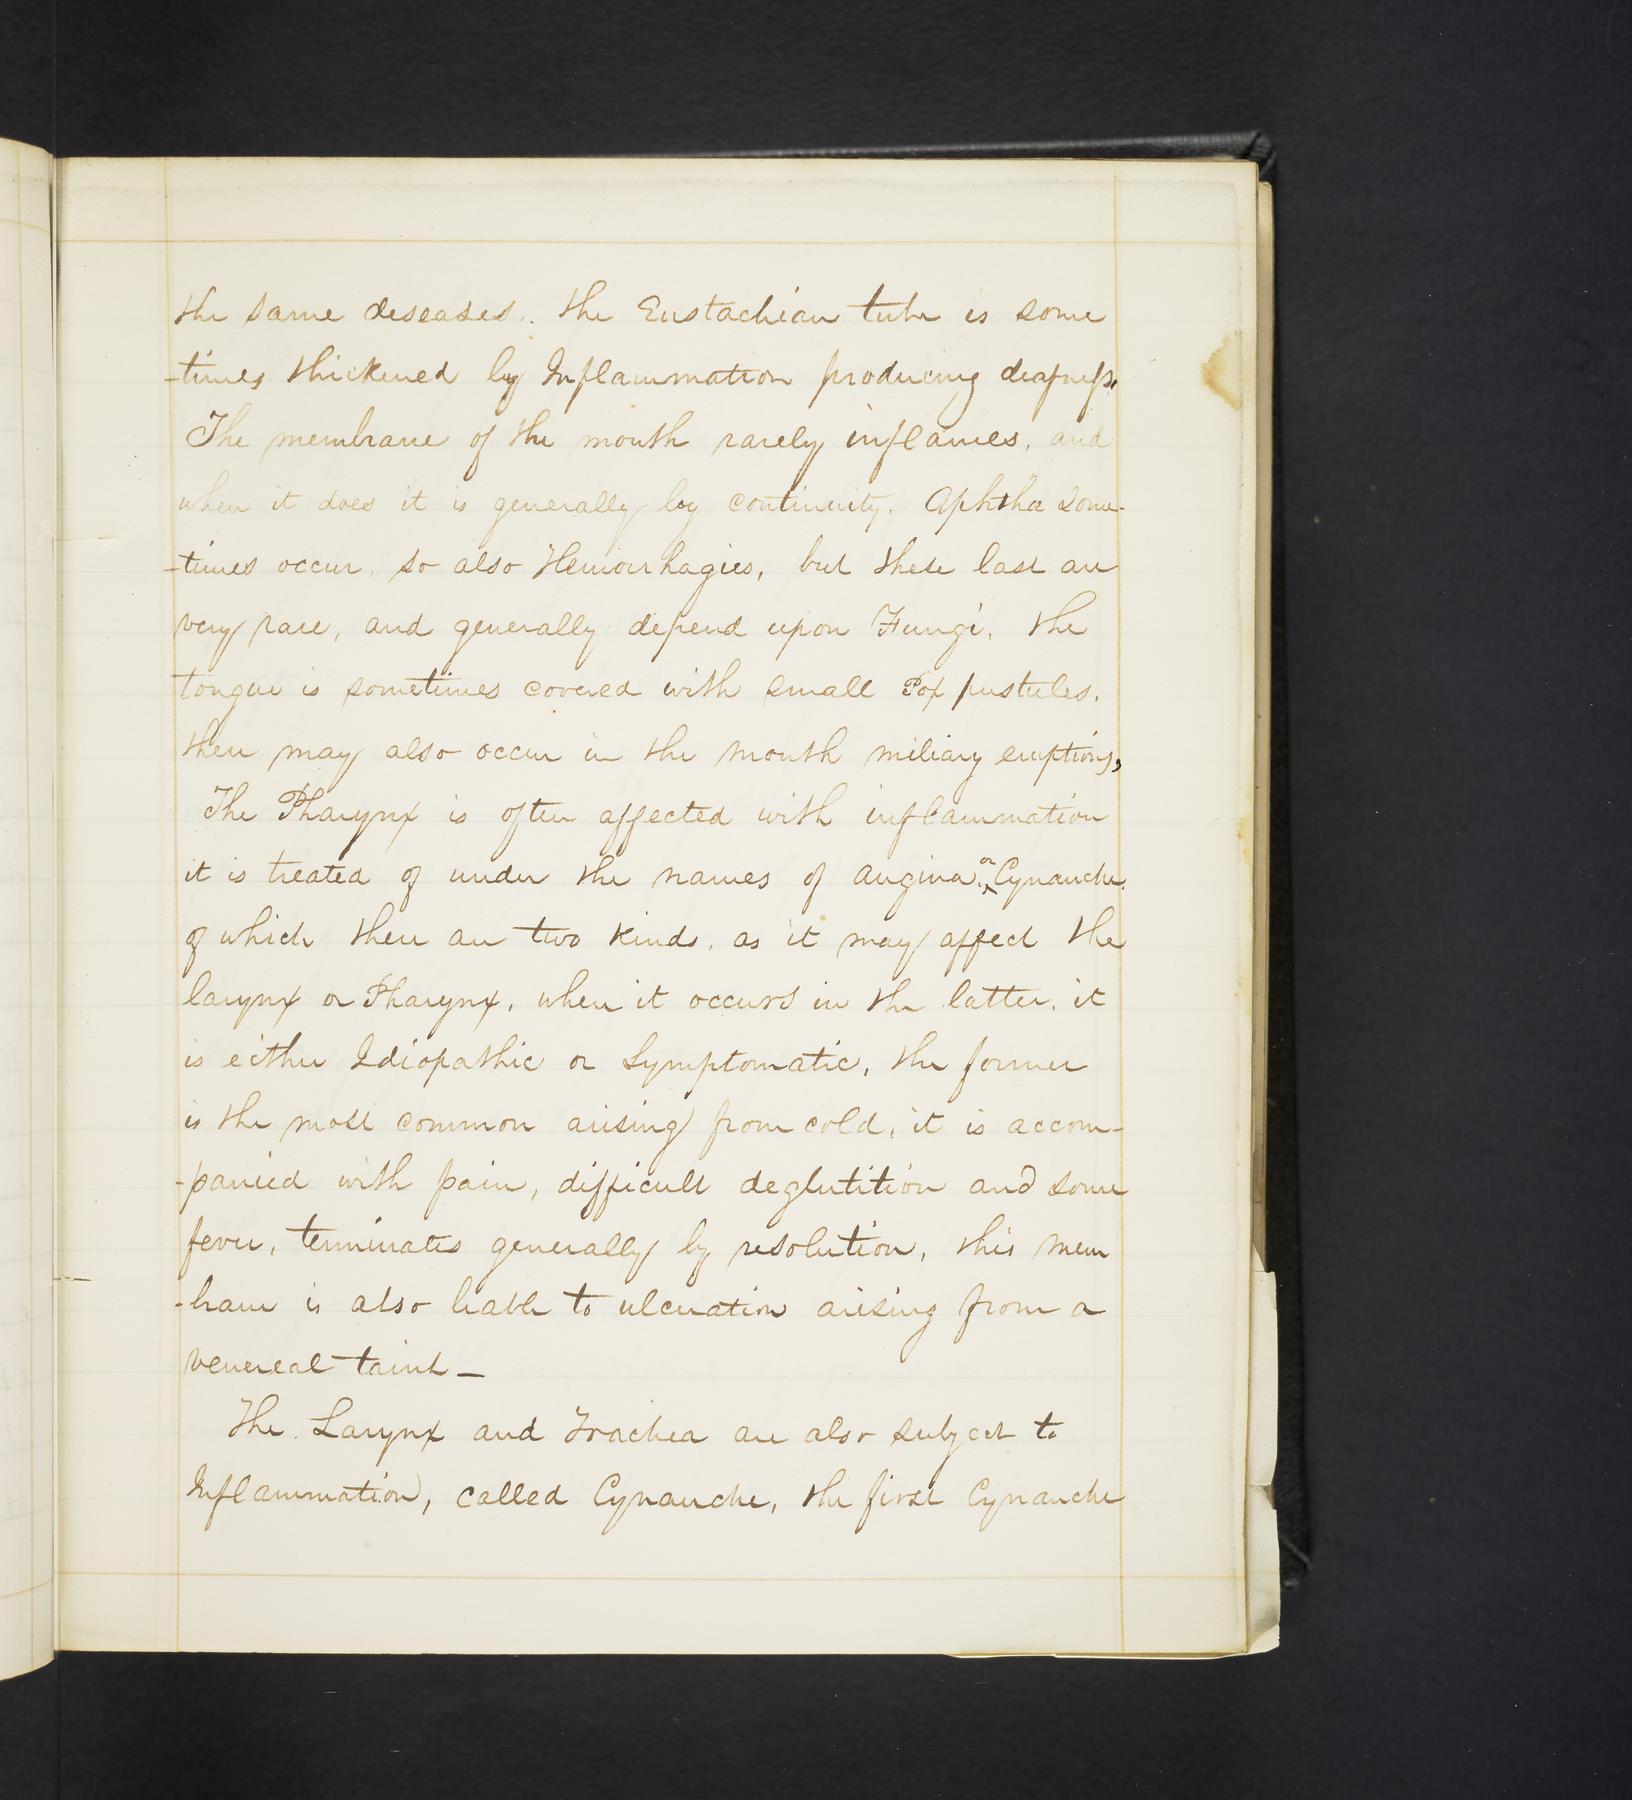 the same deseases. the Eustachian tube is some
-times thickened by Inflammation producing deafness.
The membrane of the mouth rarely inflames, and
when it does it is generally by continuity. Aphtha some-
-times occur, so also Hemorrhagies, but these last are
very rare, and generally depend upon Fungi. the
tongue is sometimes covered with small Pox pustules.
there may also occur in the mouth miliary eruptions,
The Pharynx is often affected with inflammation
it is treated of under the names of angina or Cynanche.
of which there are two kinds, as it may affect the
larynx or Pharynx, when it occurs in the latter, it
is either Idiopathic or Symptomatic, the former
is the most common arising from cold, it is accom-
-panied with pain, difficult deglutition and some
fever, terminates generally by resolution, this mem
-brane is also liable to ulceration arising from a
venereal taint —
The Larynx and Trachea are also subject to
Inflammation, called Cynanche, the first Cynanche